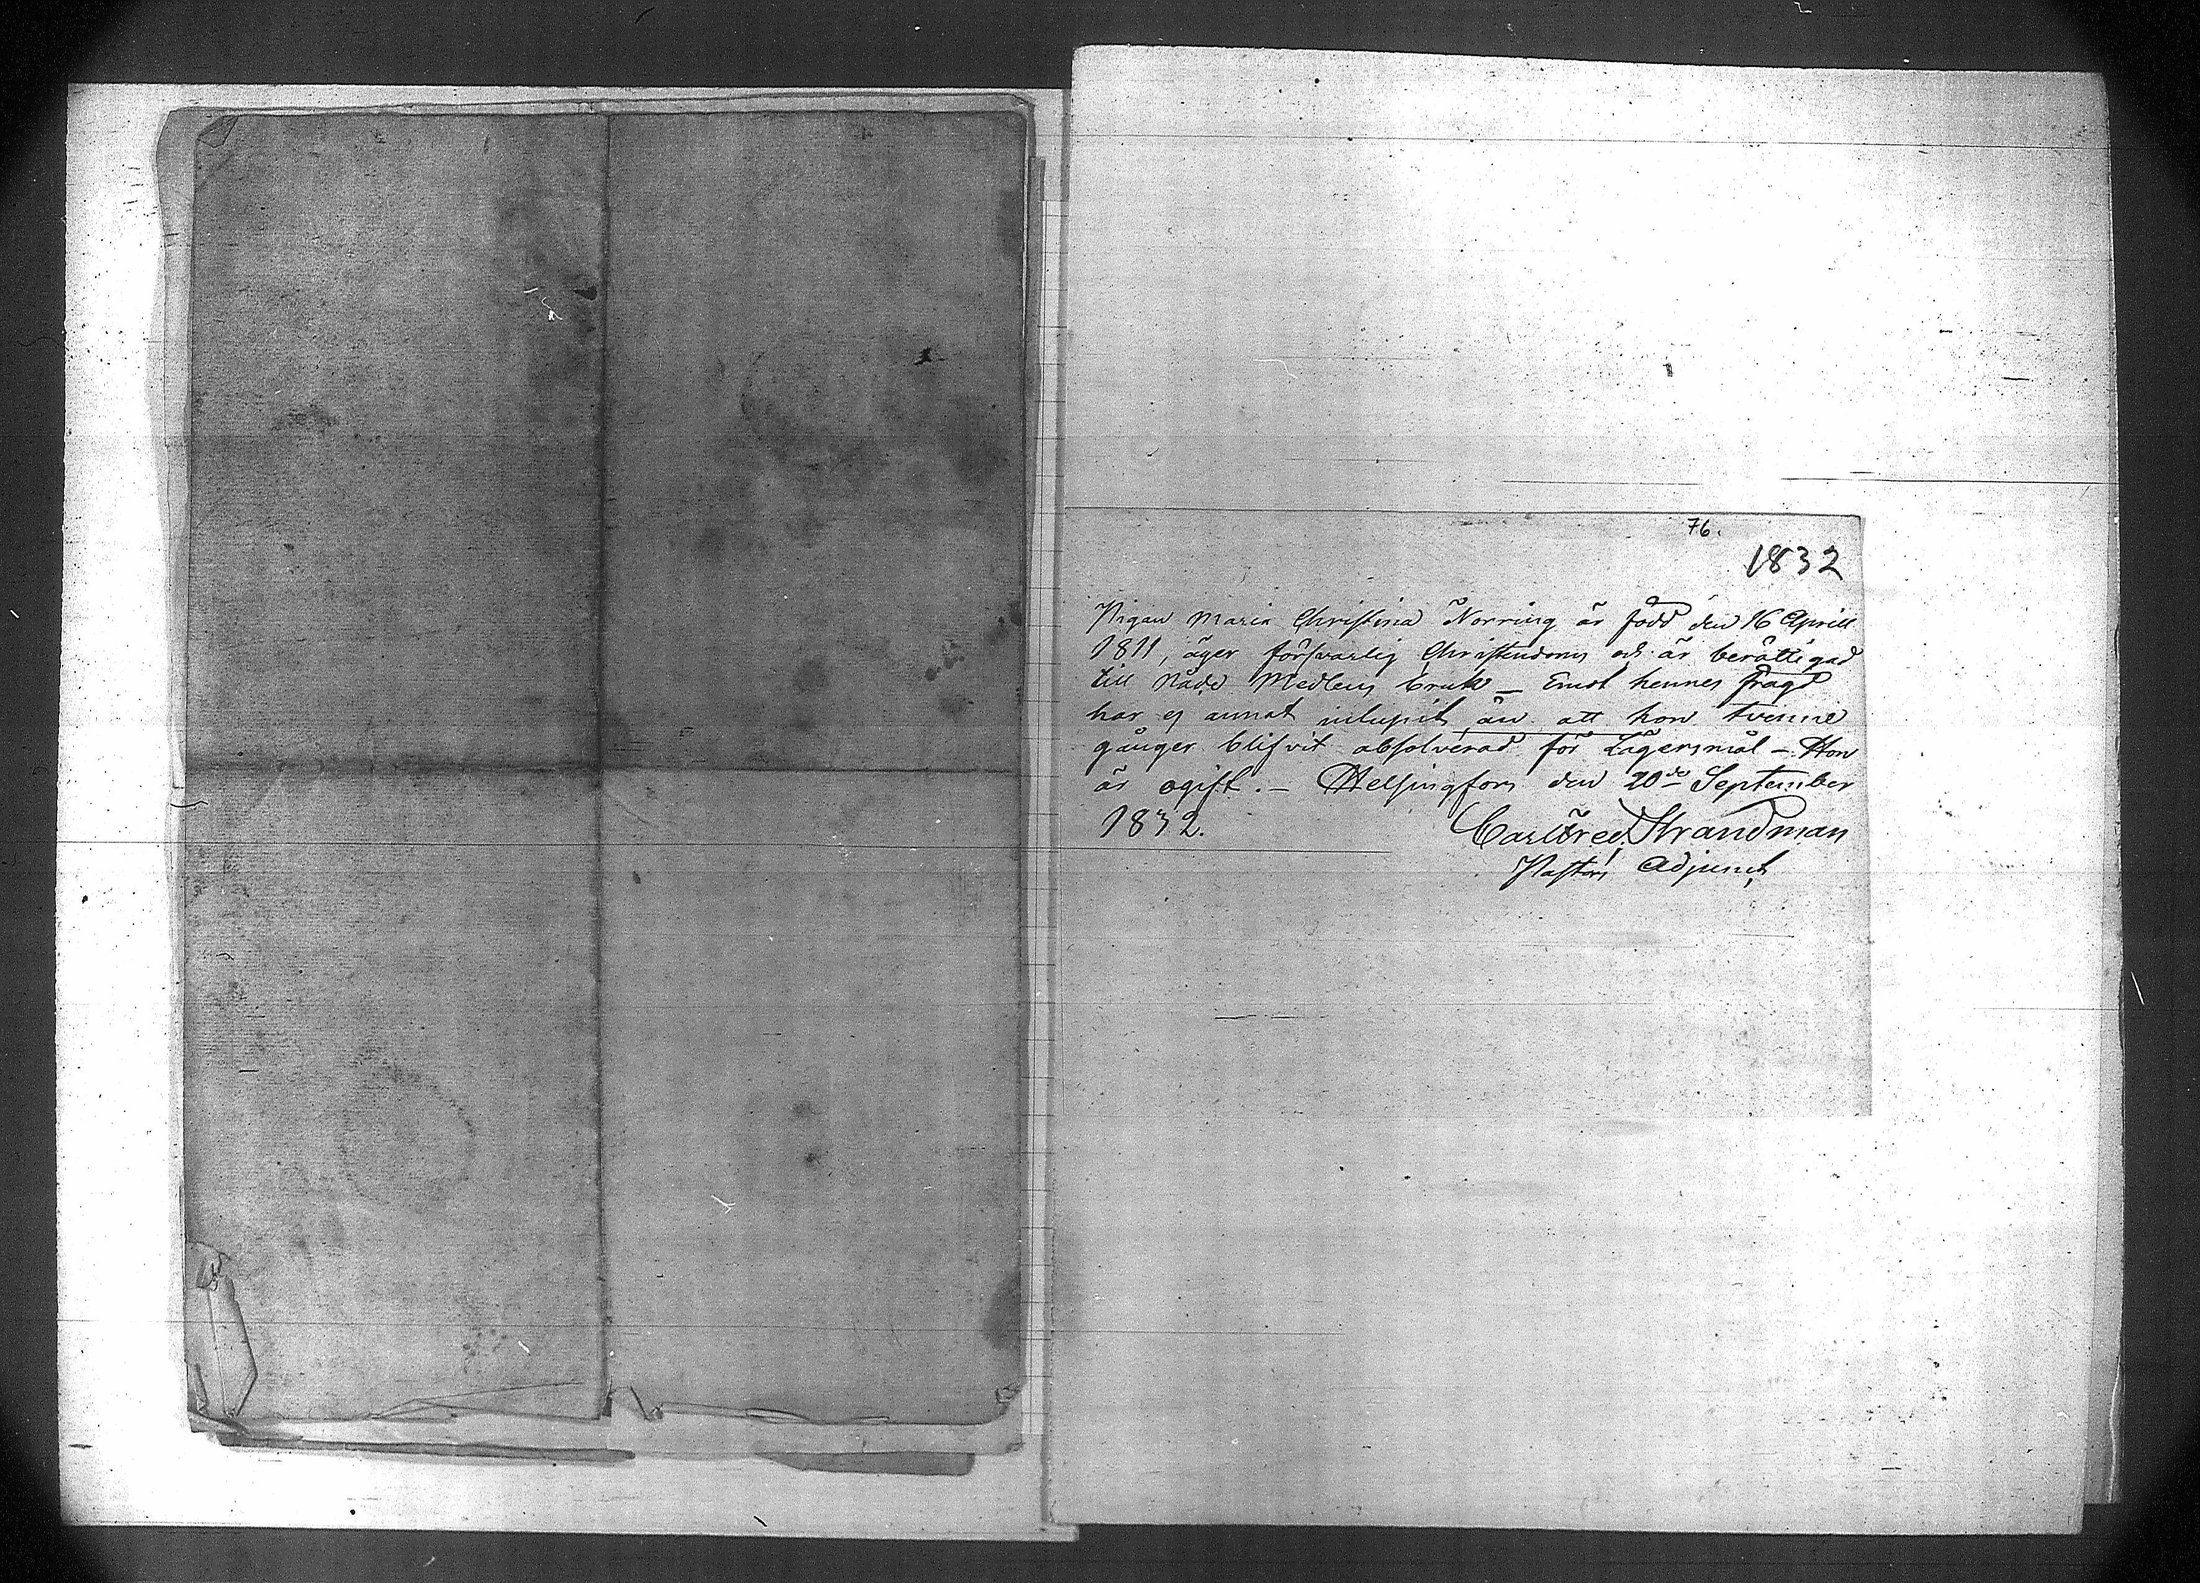 76.
1832
Pigan Maria Christina Norring är född den 16 Aprill
1811, äger försvarlig Christendom och är berättigad
till Nåde Medlens bruk – Emot hennes fragd
har ej annat inlupit, än att hon tvenne
gånger blifvit absolverad för Lägersmål – Hon
är ogift. – Helsingfors den 20de September
1832. Carl Fred. Strandman
Pastors Adjunct